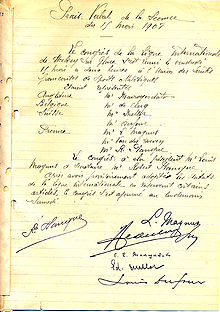 Procès Verbal de la Séance
du 15 mai 1908
Le congrès de la Ligue Internationale
de Hockey sur Glace s'est réuni le vendredi
15 mai à deux heures à l'Union des Sociétés
de Sports Athlétiques
Etaient
Angleterre Mr Mavrogordato
Belgique Mr de Clercq
Suisse Mr Mellor
Mr Dufour
France Mr L. Magnus
Mr van der Hoeven
Mr R. Planque
Le congrès a élu Président Mr Louis
Magnus et Secrétaire Mr Robert Planque
Après avoir provisoirement adopté les statuts
de la ligue internationale en réservant certains
articles, le congrès s'est ajourné au lendemain
Samedi.
R Planque
L. Magnus
Ed. Mellor
Louis Dufour